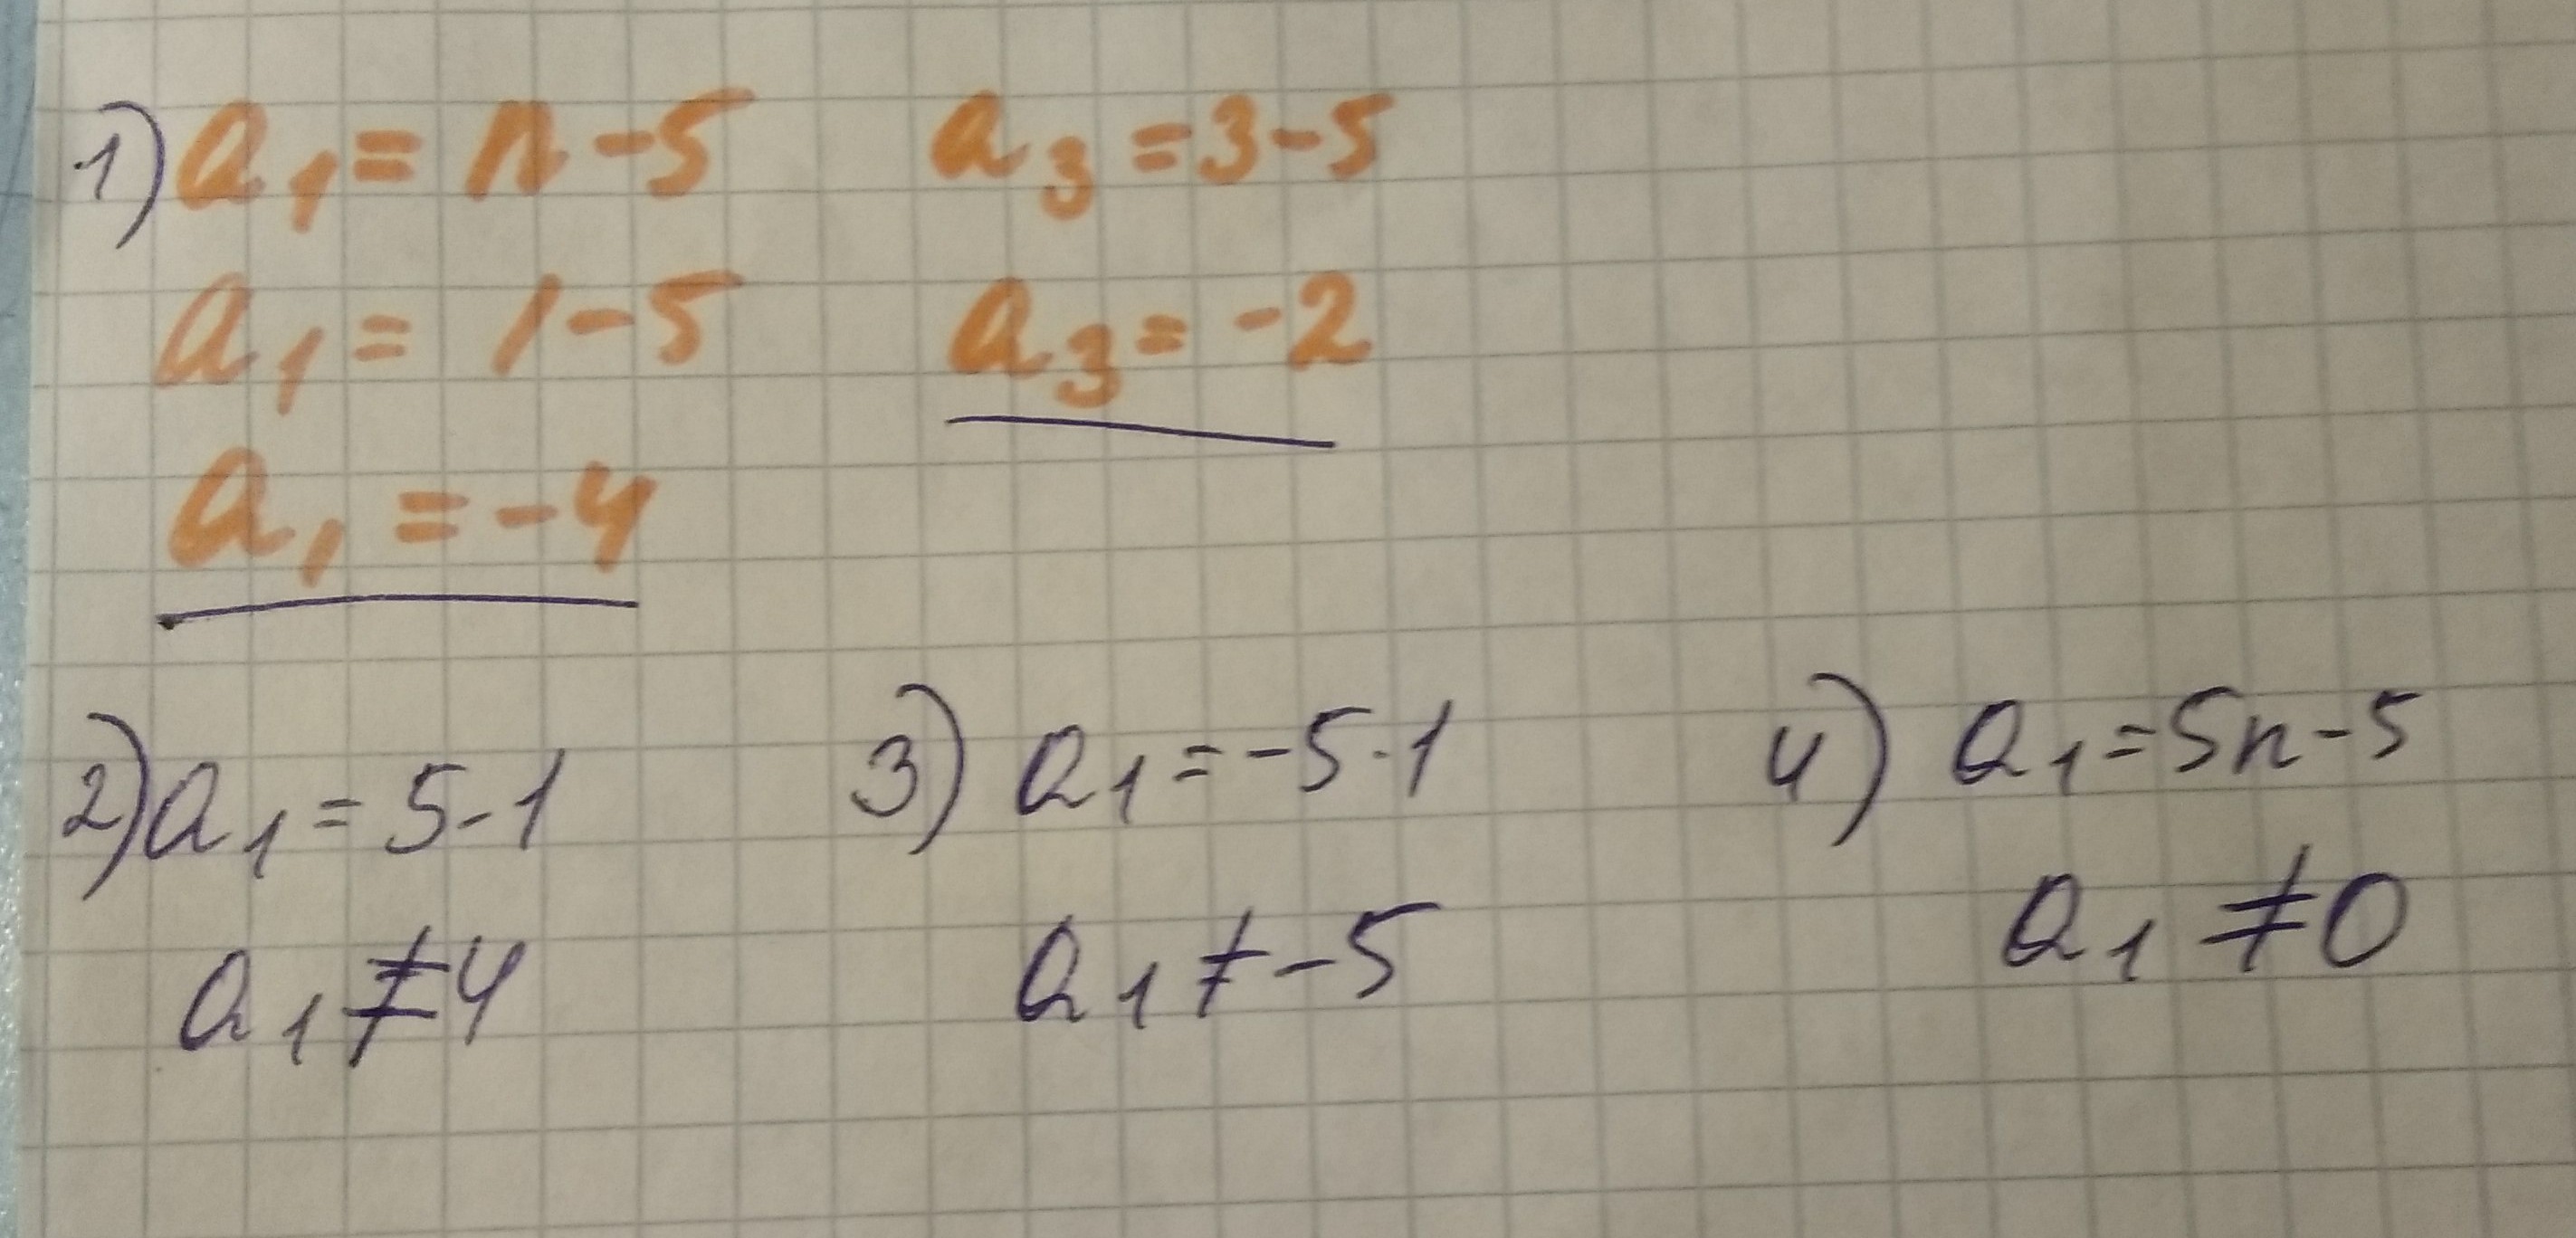 1) a₁ = n - 5
a₁ = 1 - 5
a₁ = -4
a₃ = 3 - 5
a₃ = -2
2) a₁ = 5 - 1
a₁ ≠ 4
3) a₁ = -5 · 1
a₁ ≠ -5
4) a₁ = 5n - 5
a₁ ≠ 0